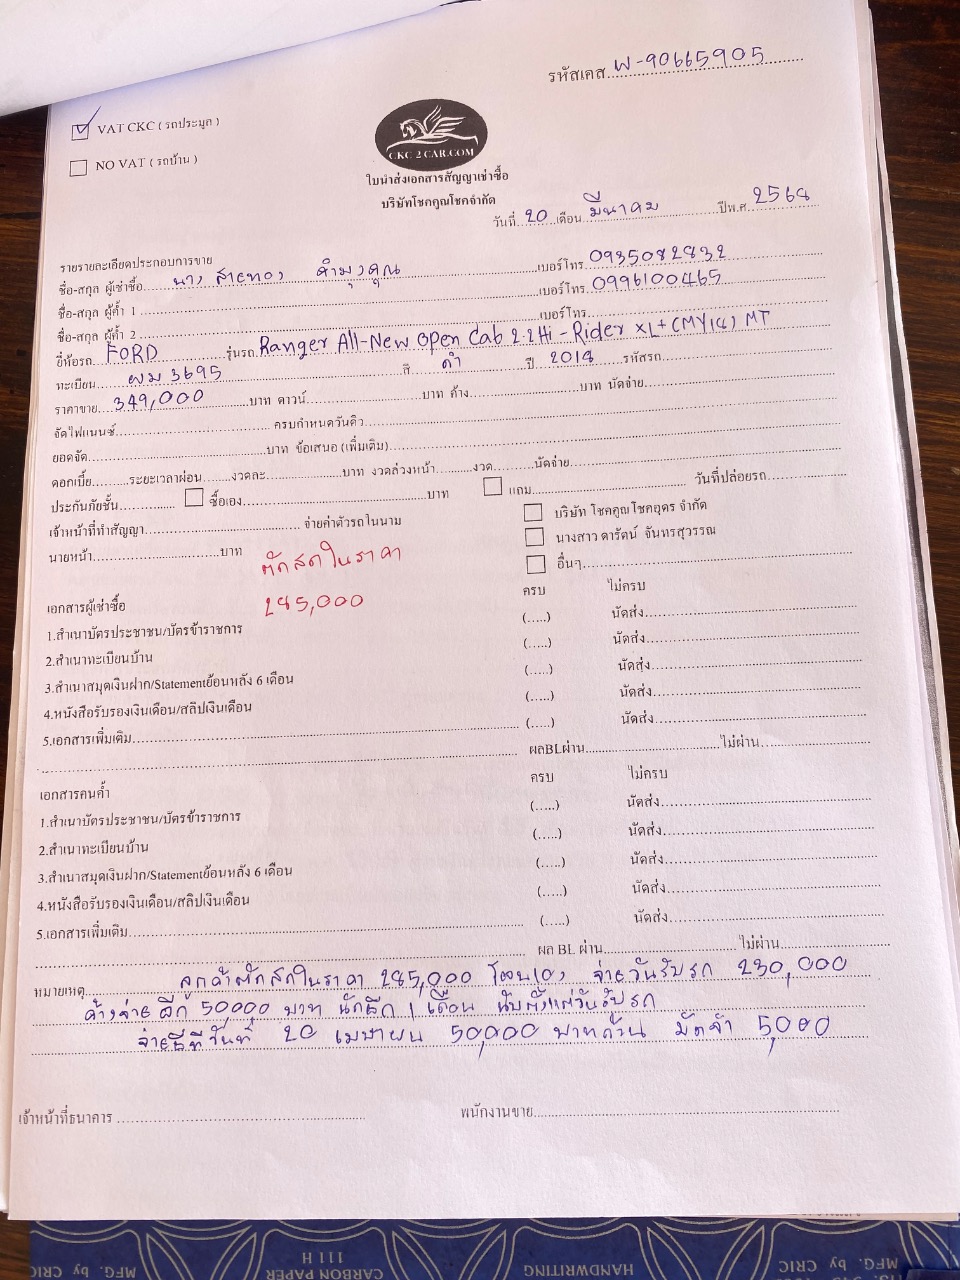 รหัสเคส W-90665905
VAT CKC ( รถประมูล )
NO VAT ( รถบ้าน )
CKC 2 CAR.COM
ใบนำส่งเอกสารสัญญาเช่าซื้อ
บริษัทโชคคูณโชคจำกัด
วันที่ 20 เดือน มีนาคม ปีพ.ศ. 2568
รายรายละเอียดประกอบการขาย
ชื่อ-สกุล ผู้เช่าซื้อ นาง สายทอง คำมุงคุณ เบอร์โทร 0935082832
ชื่อ-สกุล ผู้ค้ำ 1 เบอร์โทร 0996100465
ชื่อ-สกุล ผู้ค้ำ 2 เบอร์โทร
ยี่ห้อรถ FORD รุ่นรถ Ranger All-New Open Cab 2.2 Hi-Rider XL+(MY18) MT
ทะเบียน ผม 3695 สี ดำ ปี 2018 รหัสรถ
ราคาขาย 349,000 บาท ดาวน์ บาท ค้าง บาท นัดจ่าย
จัดไฟแนนซ์ ครบกำหนดวันคิว
ยอดจัด บาท ข้อเสนอ (เพิ่มเติม)
ดอกเบี้ย ระยะเวลาผ่อน งวดละ บาท งวดล่วงหน้า งวด นัดจ่าย
ประกันภัยชั้น ซื้อเอง บาท แถม วันที่ปล่อยรถ
เจ้าหน้าที่ทำสัญญา จ่ายค่าตัวรถในนาม บริษัท โชคคูณโชคอุดร จำกัด
นายหน้า บาท นางสาว ดารัตน์ จันทรสุวรรณ
ตัดสดในราคา อื่นๆ
285,000
เอกสารผู้เช่าซื้อ ครบ ไม่ครบ
1.สำเนาบัตรประชาชน/บัตรข้าราชการ (.....) นัดส่ง
2.สำเนาทะเบียนบ้าน (.....) นัดส่ง
3.สำเนาสมุดเงินฝาก/Statementย้อนหลัง 6 เดือน (.....) นัดส่ง
4.หนังสือรับรองเงินเดือน/สลิปเงินเดือน (.....) นัดส่ง
5.เอกสารเพิ่มเติม (.....) นัดส่ง
ผลBLผ่าน ไม่ผ่าน
เอกสารคนค้ำ ครบ ไม่ครบ
1.สำเนาบัตรประชาชน/บัตรข้าราชการ (.....) นัดส่ง
2.สำเนาทะเบียนบ้าน (.....) นัดส่ง
3.สำเนาสมุดเงินฝาก/Statementย้อนหลัง 6 เดือน (.....) นัดส่ง
4.หนังสือรับรองเงินเดือน/สลิปเงินเดือน (.....) นัดส่ง
5.เอกสารเพิ่มเติม (.....) นัดส่ง
ผล BL ผ่าน ไม่ผ่าน
หมายเหตุ ลูกค้าตัดสดในราคา 285,000 โอนเอง จ่ายวันรับรถ 230,000
ค้างจ่ายอีก 50,000 บาท นัดอีก 1 เดือน นับตั้งแต่วันรับรถ
จ่ายอีกทีวันที่ 20 เมษายน 50,000 บาทถ้วน มัดจำ 5,000
เจ้าหน้าที่ธนาคาร พนักงานขาย
MFG. by CRIC
CARBON PAPER
111 H
HANDWRITING
MFG. by CRIC